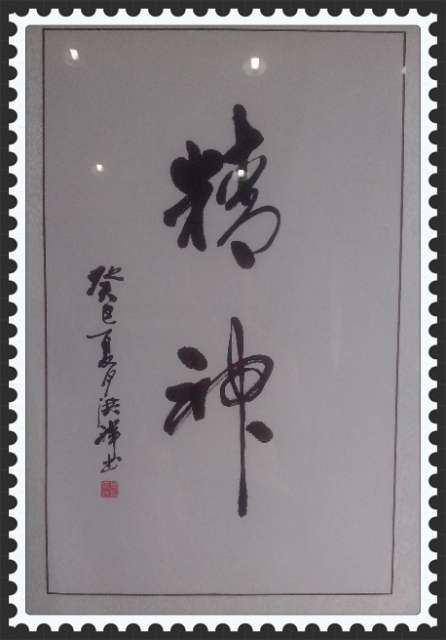 精神
癸巳夏月洪书